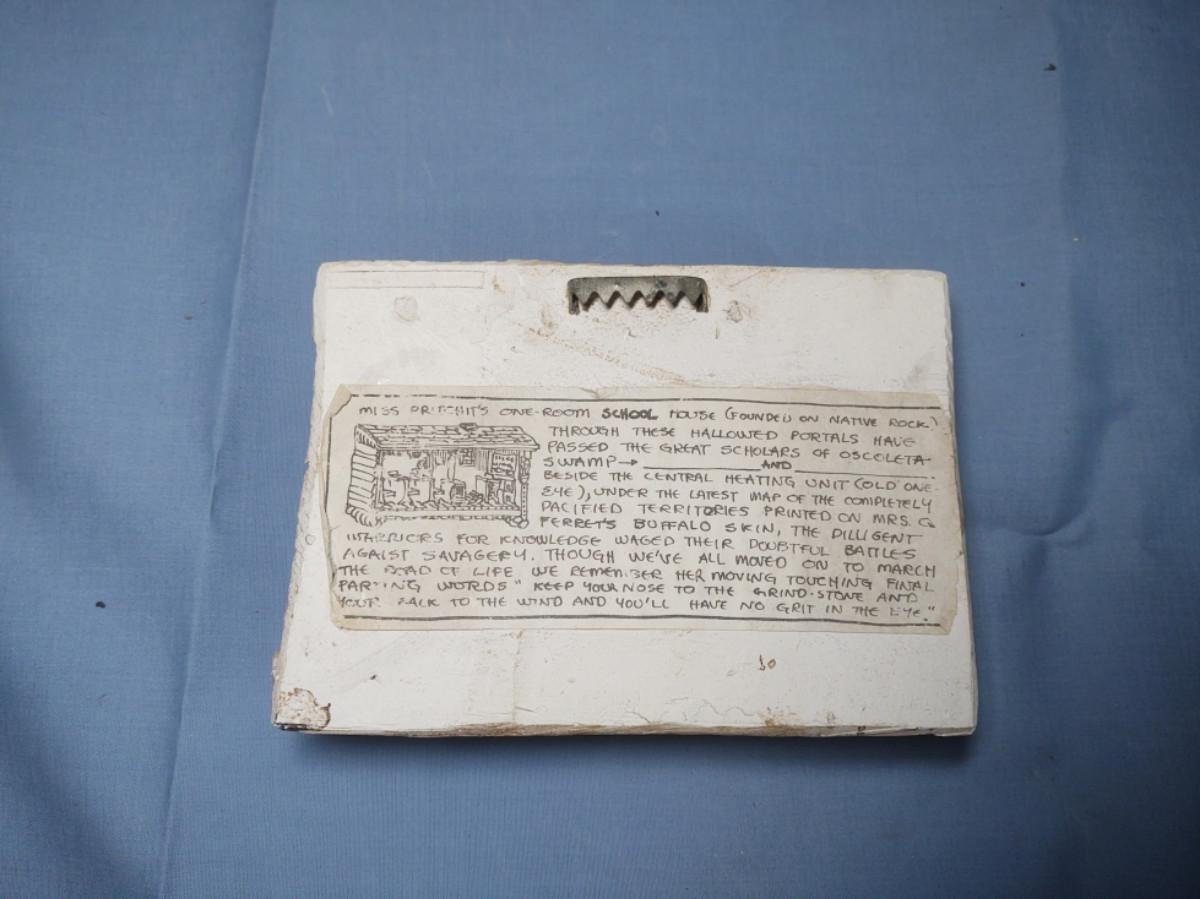 MISS PRITCHIT'S ONE-ROOM SCHOOL HOUSE (FOUNDED ON NATIVE ROCK)
THROUGH THESE HALLOWED PORTALS HAVE
PASSED THE GREAT SCHOLARS OF OSCOLETA
SWAMP→ __________ AND __________.
BESIDE THE CENTRAL HEATING UNIT (OLD ONE-
EYE), UNDER THE LATEST MAP OF THE COMPLETELY
PACIFIED TERRITORIES PRINTED ON MRS. G
FERRET'S BUFFALO SKIN, THE DILLIGENT
WARRIORS FOR KNOWLEDGE WAGED THEIR DOUBTFUL BATTLES
AGAIST SAVAGERY. THOUGH WE'VE ALL MOVED ON TO MARCH
THE ROAD OF LIFE WE REMEMBER HER MOVING TOUCHING FINAL
PARTING WORDS "KEEP YOUR NOSE TO THE GRIND-STONE AND
YOUR BACK TO THE WIND AND YOU'LL HAVE NO GRIT IN THE EYE."